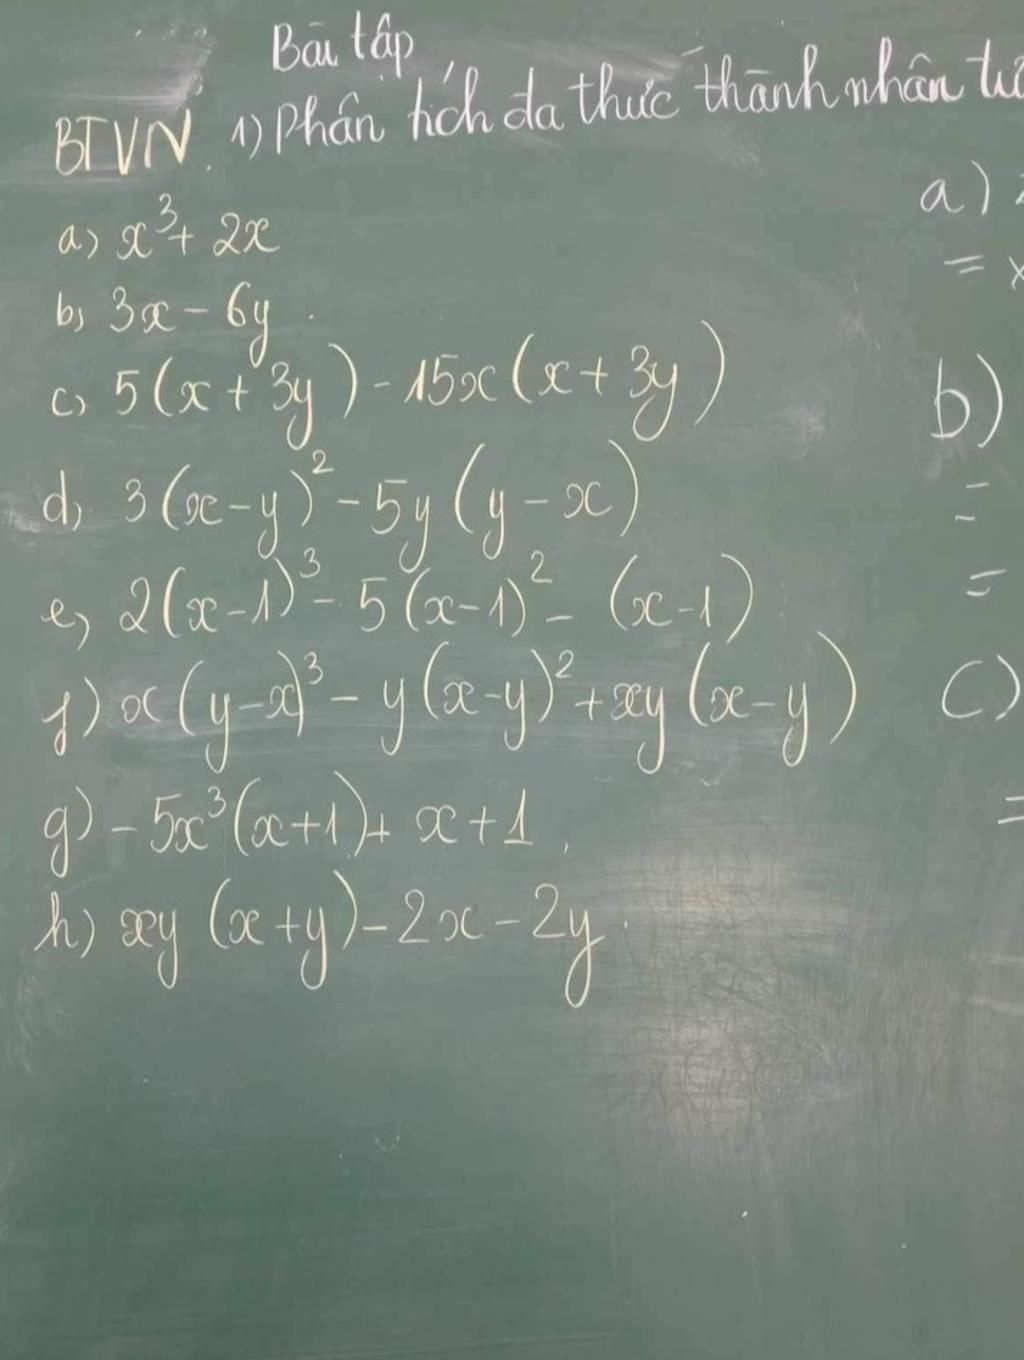 Bài tập
BTVN. 1) Phân tích đa thức thành nhân tử
a) x³ + 2x
b) 3x - 6y
c) 5(x + 3y) - 15x(x + 3y)
d) 3(x - y)² - 5y(y - x)
e) 2(x - 1)³ - 5(x - 1)² - (x - 1)
f) x(y - x)³ - y(x - y)² + xy(x - y)
g) - 5x³(x + 1) + x + 1
h) xy(x + y) - 2x - 2y
a)
= x
b)
=
=
c)
=